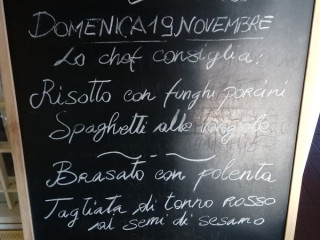 DOMENICA 19 NOVEMBRE
Lo chef consiglia:
Risotto con funghi porcini
Spaghetti alle vongole
Brasato con polenta
Tagliata di tonno rosso
ai semi di sesamo